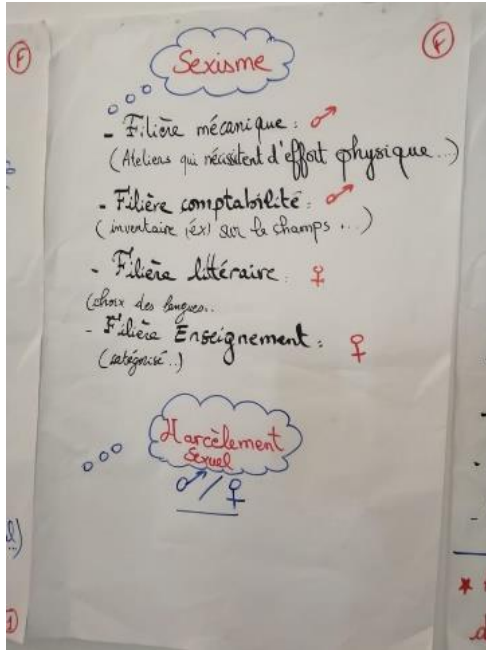 F
F
Sexisme
- Filière mécanique : ♂
(Ateliers qui nécessitent d'effort physique...)
- Filière comptabilité : ♂
(inventaire, ex) sur le champs ...)
- Filière littéraire : ♀
(choix des langues..
- Filière Enseignement : ♀
(catégorisé..)
Harcèlement
Sexuel
♂/♀